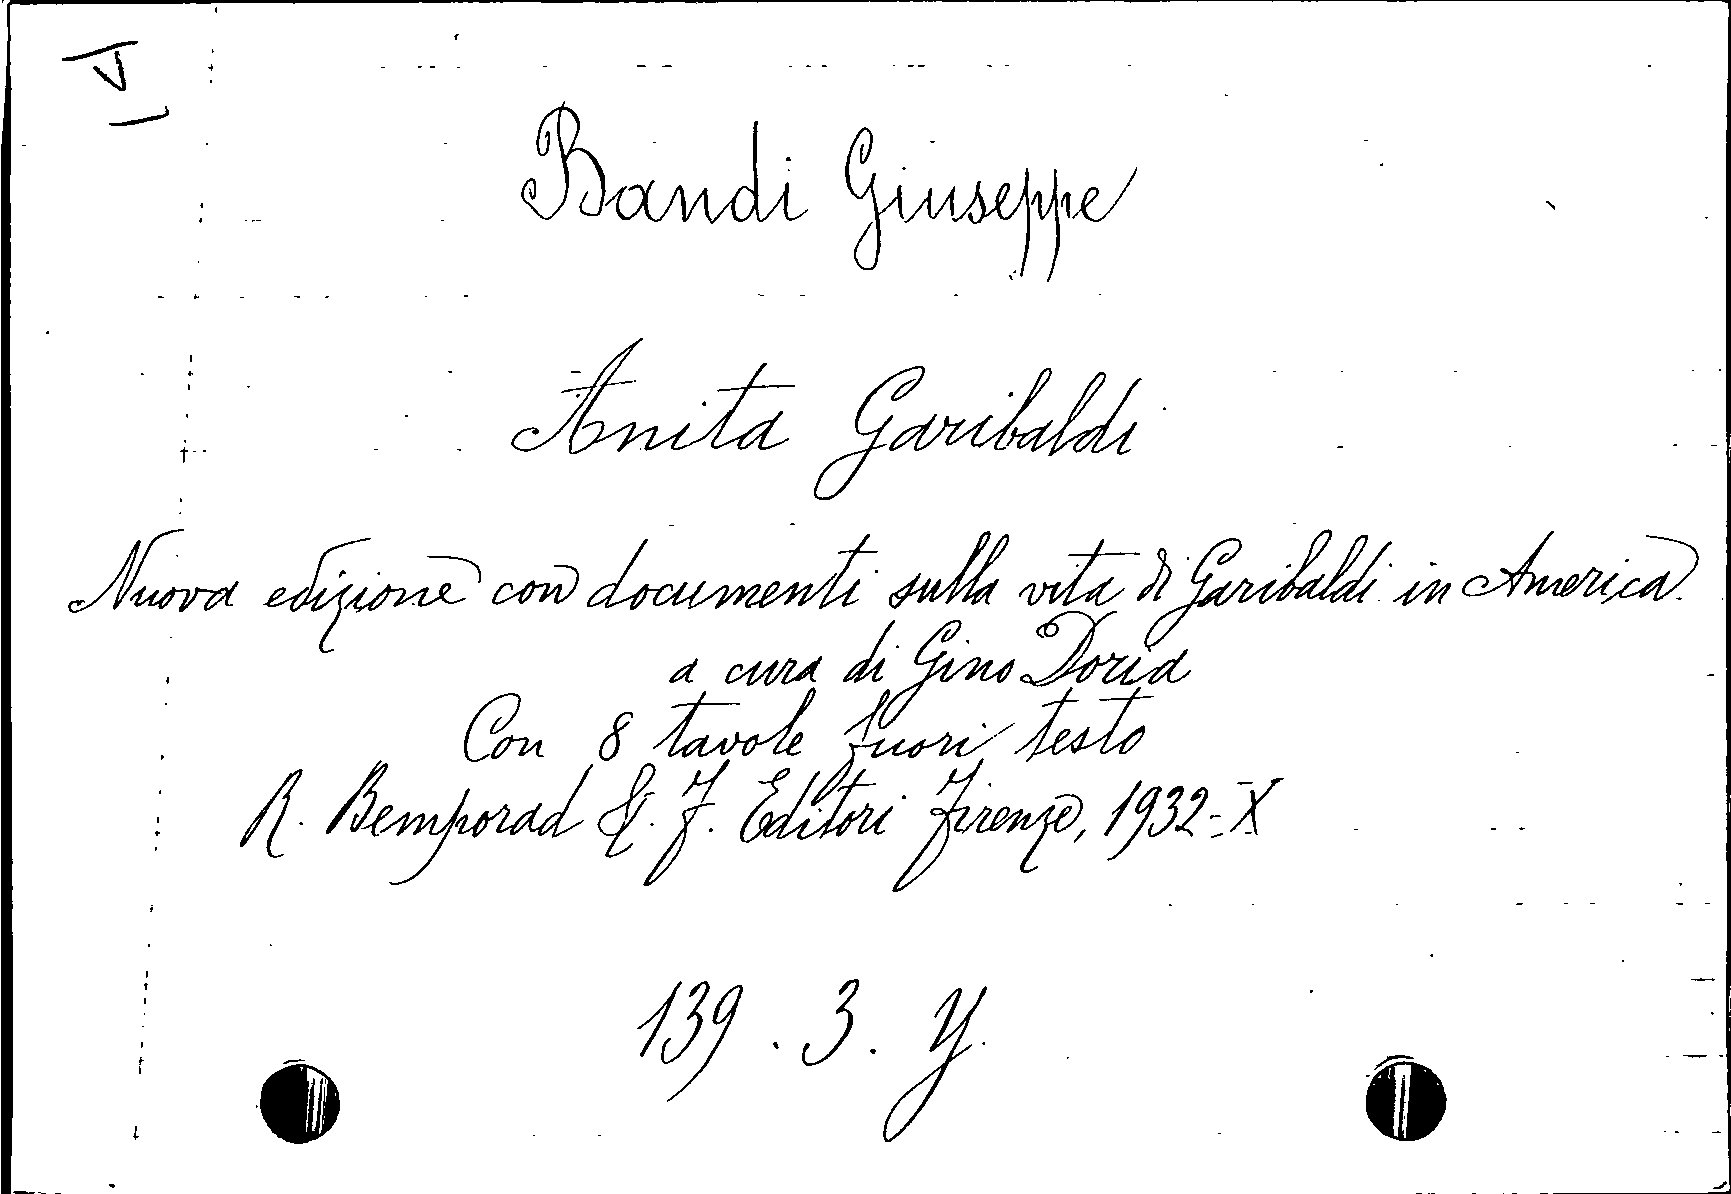 Bandi Giuseppe
Anita Garibaldi
Nuova edizione con documenti sulla vita di Garibaldi in America
a cura di Gino Doria
Con 8 tavole fuori testo
R. Bemporad & F. Editori Firenze, 1932-X
139. 3. Y.